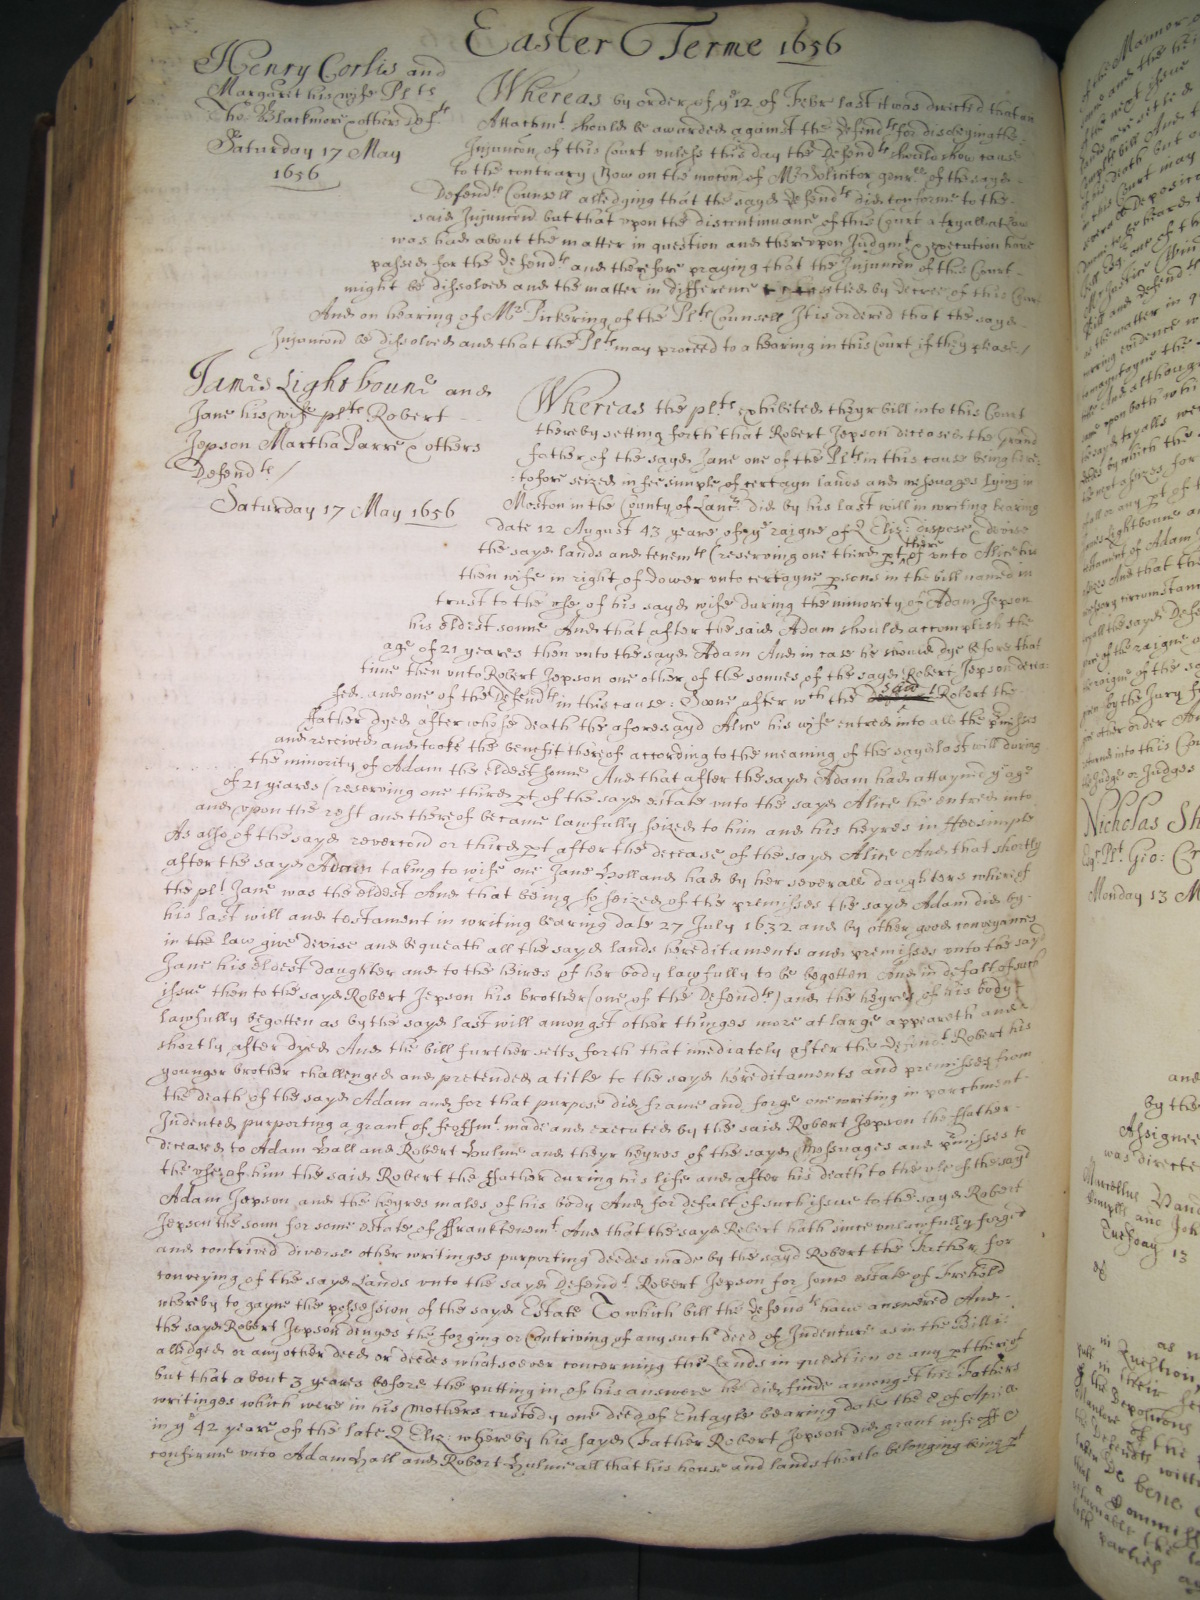 Easter Terme 1656
Henry Corlis and
Margaret his wife Plts
Tho: Blackmore & others Deftes
Saturday 17 May
1656
Whereas by order of ye 12 of Febr last it was directed that an
Attachmt should be awarded against the Defendtes for disobeying the
Injuncon of this Court unless this day the Defendtes should shew cause
to the contrary Now on the mocon of Mr Solicitor genrll of the sayd
Defendtes Counsell alledging that the sayd Defendtes did conforme to the
said Injuncond but that upon the discontinuance of this Court a tryall at law
was had about the matter in question and thereupon Judgmt & execution have
passed for the Defendtes and therefore praying that the Injuncon of this Court
might be dissolved and the matter in difference setled by decree of this Court
And on hearing of Mr Pickering of the Pltes Counsell It is ordered that the sayd
Injuncond be dissolved and that the Pltes may proceed to a hearing in this Court if they please /
James Lightbound and
Jane his wife pltes Robert
Jepson Martha Parre & others
Defendtes /
Saturday 17 May 1656
Whereas the pltes exhibited theyr bill into this Court
thereby setting forth that Robert Jepson deceased the Grand
father of the sayd Jane one of the Pltes in this cause being here
tofore seized in fee simple of certayn lands and messuages lying in
Moston in the County of Lancr did by his last will in writing bearing
date 12 August 43 yeare of ye raigne of Q Eliz: dispose & devise
the sayd lands and tenemtes (reserving one third pt thereof unto Alice his
then wife in right of dower unto certayne psons in the bill named in
trust to the use of his sayd wife during the minority of Adam Jepson
his eldest sonne And that after the said Adam should accomplish the
age of 21 yeares then unto the sayd Adam And in case he should dye before that
time then unto Robert Jepson one other of the sonnes of the sayd Robert Jepson decea
sed and one of the Defendtes in this cause: Soone after wch the said Robert the
ffather dyed after whose death the aforesayd Alice his wife entred into all the pmisses
and received and tooke the benefit thereof according to the meaning of the sayd last will during
the minority of Adam the eldest sonne And that after the sayd Adam had attayned ye age
of 21 yeares (reserving one third pt of the sayd estate unto the sayd Alice he entred into
and upon the rest and thereof became lawfully seized to him and his heyres in ffee simple
As also of the sayd revercond or third pt after the decease of the sayd Alice And that shortly
after the sayd Adam taking to wife one Jane Holland had by her severall daughters whereof
the plt Jane was the eldest And that being so seized of the premisses the sayd Adam did by
his last will and testament in writing bearing date 27 July 1632 and by other good conveyances
in the law give devise and bequeath all the sayd lands hereditaments and premisses unto the sayd
Jane his eldest daughter and to the heires of her body lawfully to be begotten And in defalt of such
issue then to the sayd Robert Jepson his brother (one of the Defendtes) and the heyres of his body
lawfully begotten as by the sayd last will amongst other thinges more at large appeareth and
shortly after dyed And the bill further setts forth that imediately after the Defendt Robert his
younger brother challenged and pretended a title to the sayd hereditaments and premisses from
the death of the sayd Adam and for that purpose did frame and forge one writing in parchment
Indented purporting a grant of feoffmt made and executed by the said Robert Jepson the ffather
deceased to Adam Hall and Robert Hulme and theyr heyres of the sayd Messuages and pmisses to
the use of him the said Robert the ffather during his life and after his death to the use of the sayd
Adam Jepson and the heyres males of his body And for defalt of such issue to the sayd Robert
Jepson the sonn for some estate of ffranktenemt And that the sayd Robert hath since unlawfully forged
and contrived diverse other writinges purporting deedes made by the sayd Robert the Father for
conveying of the sayd Lands unto the sayd Defendt Robert Jepson for some estate of Frehold
whereby to gayne the possession of the sayd Estate To which bill the Defendtes have answered And
the sayd Robert Jepson denyes the forging or contriving of any such deed of Indenture as in the Bill is
alledged or any other deed or deedes whatsoever concerning the Lands in question or any pt thereof
but that about 3 yeares before the putting in of his answere he did finde amongst his Fathers
writinges which were in his Mothers custody one deed of Entayle bearing date the 8 of Aprill
in ye 42 yeare of the late Q Eliz: whereby his sayd Father Robert Jepson did grant infeoff &
confirme unto Adam Hall and Robert Hulme all that his house and lands thereto belonging being pt
Nicholas Sh
Geo: Cr
Monday 13 M
and
by the
Assignee
was directe
Marcellus Vand
Tuesday 13